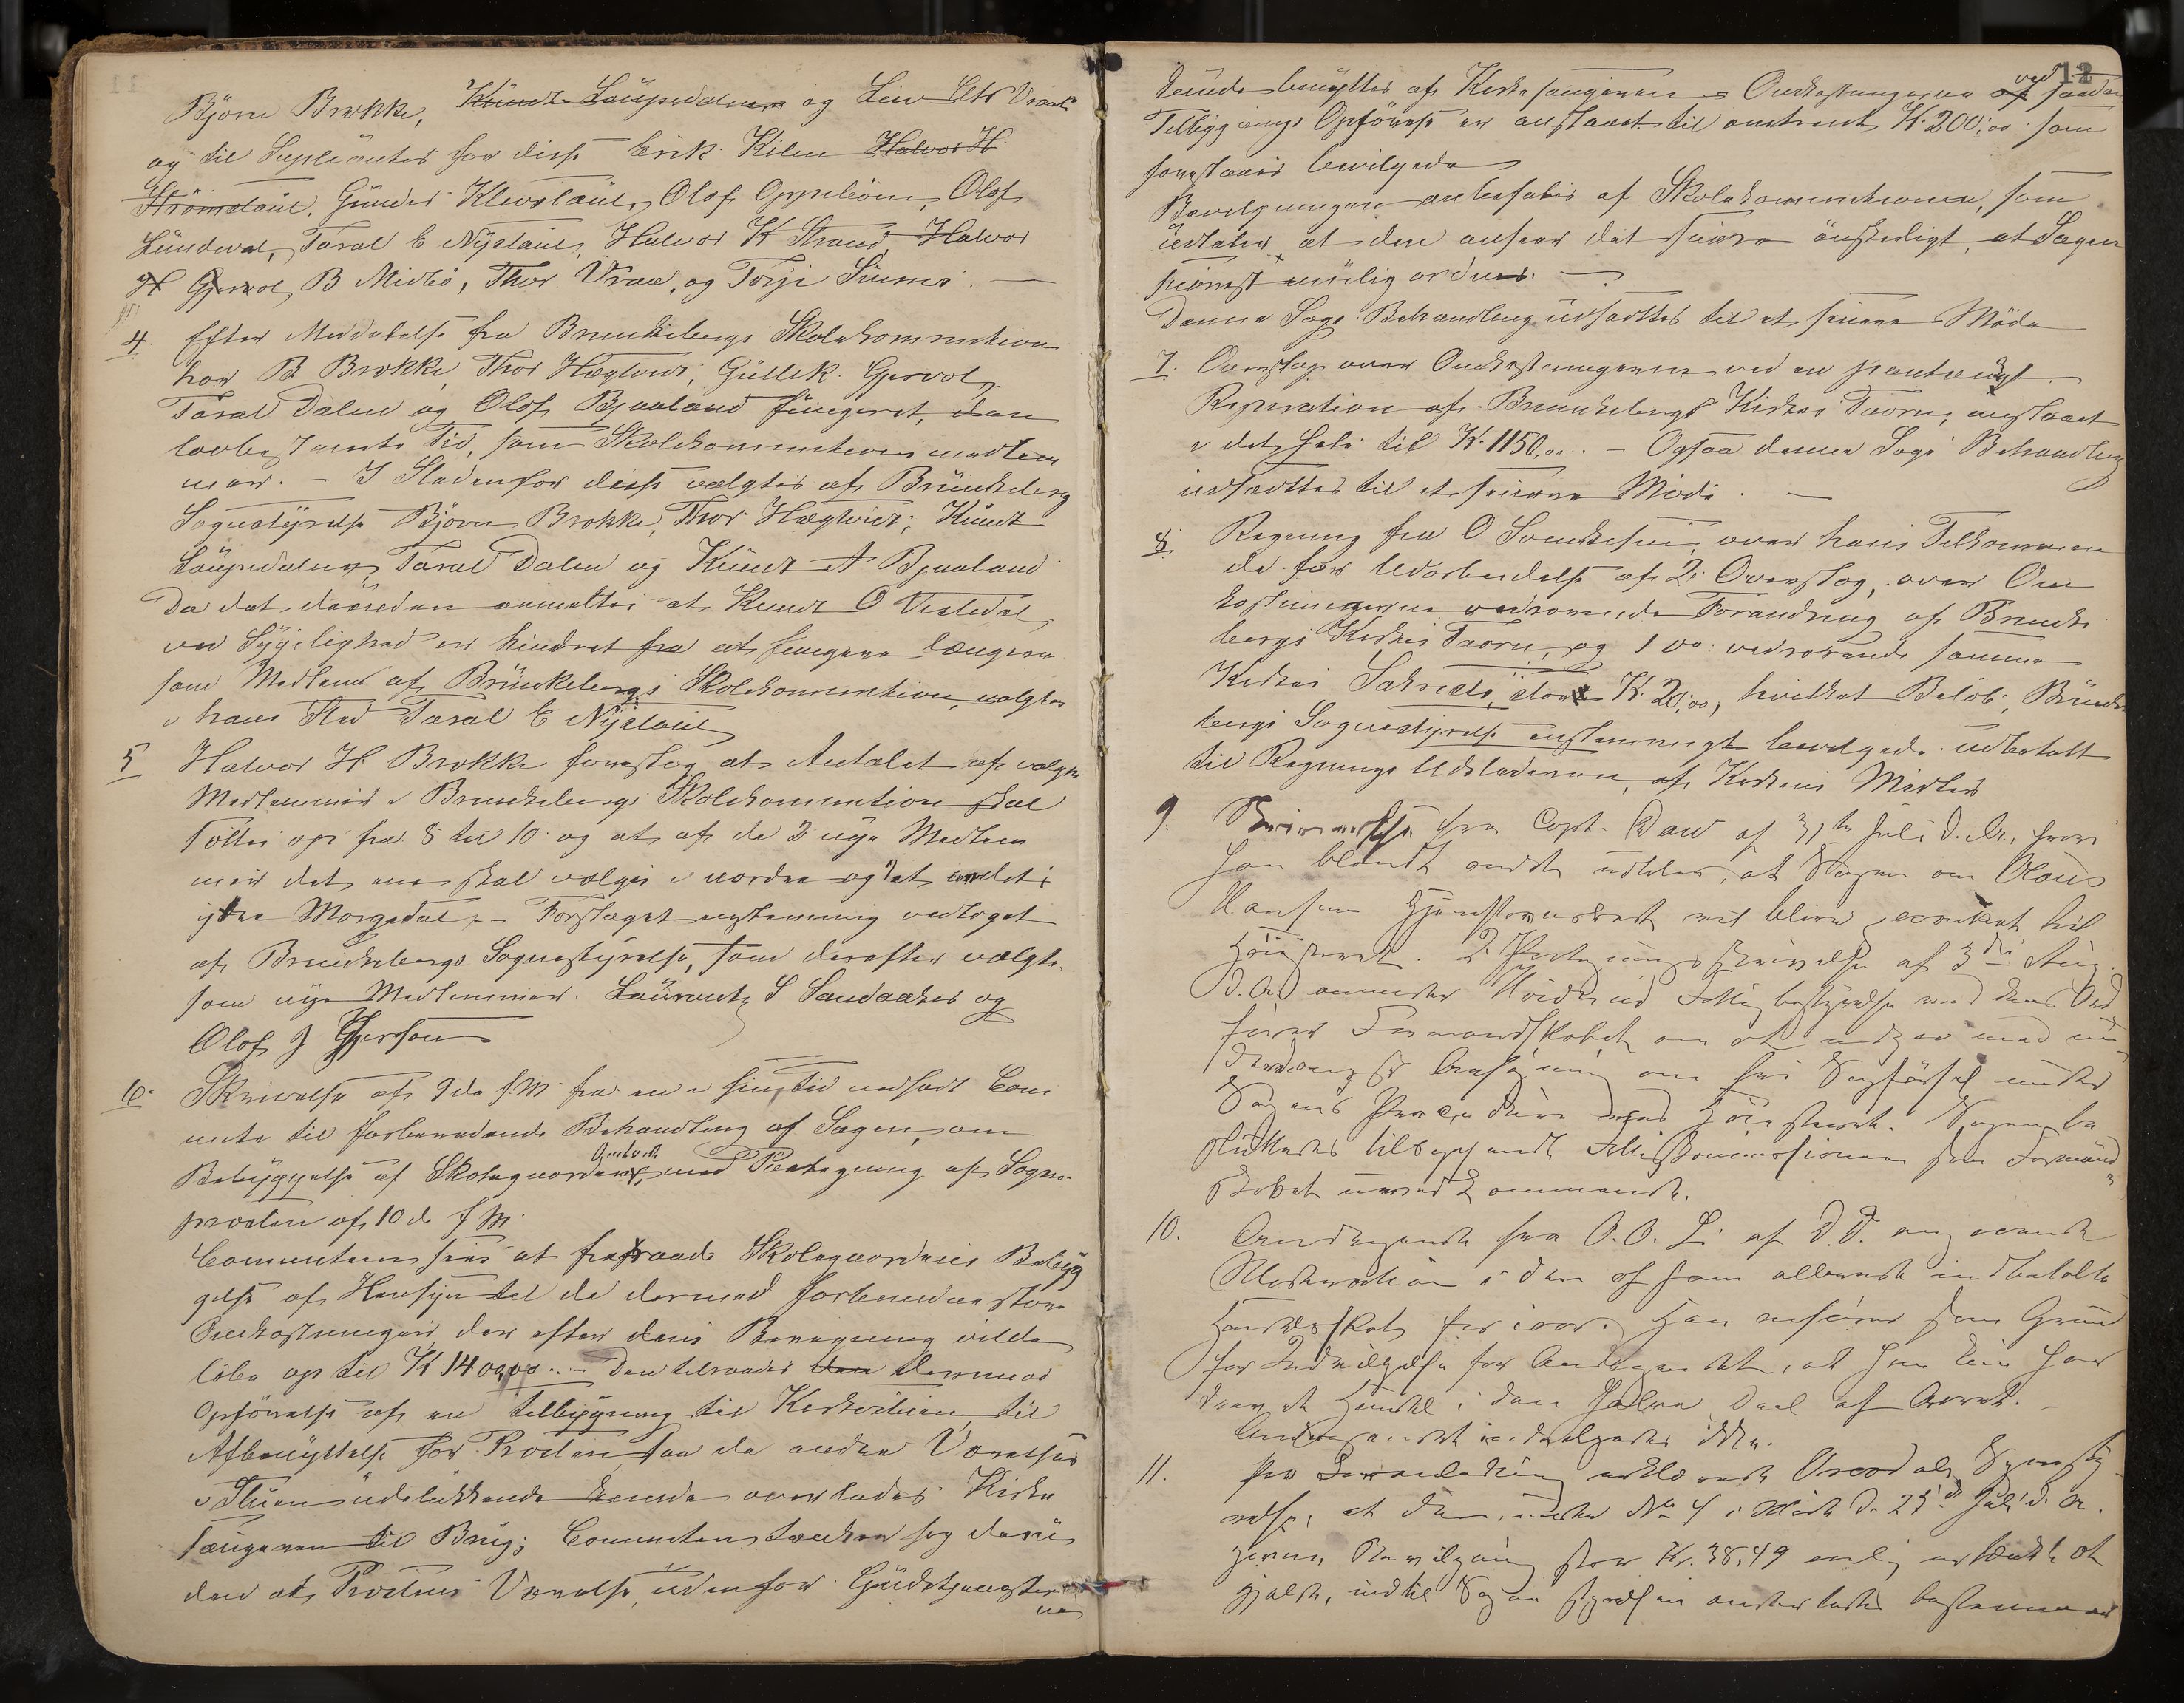 Björn Brokke, Knudt Laupedalen og Liv Els Vraali
og til Suplianter for disse Erik Kilen Halvor H
Strömstaul, Gunder Klevstaul, Olof Oppeboen, Olof
Lundeval, Taral E Nystaul, Halvor K Strand, Halvor
H Gjervol, B Midbö, Thor Vraa, og Torje Sunns. —
4. Efter Meddelelse fra Brunkebergs Skolekommission
har B Brokke, Thor Hægtveit, Gullek Gjervol,
Taral Dalen og Olof Bjaaland fungeret, den
lovbestemte Tid, som Skolekommissions medlem
mer. – I Stedenfor disse valgtes af Brunkeberg
Sognestyrelse Björn Brokke, Thor Hægtveit, Knudt
Laupedalen, Taral Dalen og Knudt A Bjaaland
Da det desuden anmeltes at Knudt O Vesledal,
ved Sygelighed er hindret fra at fungere længere
som Medlem af Brunkebergs Skolekommission, valgtes
i hans Sted Taral E Nystaul
5 Halvor H. Brokke foreslog at Antalet af valgte
Medlemmer i Brunkebergs Skolekommission skal
Töttes op fra 8 til 10 og at af de 2 nye Medlem
mer det ene skal vælges i nordre og det andet i
ytre Morgedal. – Forslaget enstemmig vedtaget
af Brunkebergs Sognestyrelse, som derefter valgte
som nye Medlemmer. Laurantz S Sandaaker og
Olof J Gjersson
6. Skrivelse af 9de f.M. fra en i sin tid nedsat Com
mite til forberedende Behandling af Sagen, om
Bebyggelse af Skolegaarden, med Paategning af Sogne-
presten af 10de f M.
Committeen synes at fraraade Skolegaardens Bebyg
gelse af Hensyn til de dermed forbundne store
Omkostninger, der efter dens Beregning vilde
löbe op til K. 1400,00. – Den tilraader den dermod
Opförelse af en tilbygning til Kirkestuen til
Afbenyttelse for Presten saa de andre Værelser
i Stuen udelukkende kunde overlades Kirke
sangeren til Brug; Committeen tænker sig desu
den at Prestens Værelse, udenfor Gudstjenester
ne
12
kunde benyttes af Kirkesangeren. Omkostningerne af ved saadan
Tilbygnings Opförelse er anslaaet til omtrent K. 200,00. som
foreslaaes bevilgede
Bevilgningen anbefales af Skolekommissionen, som
udtaler at den anseer det især önskeligt, at Sagen
snarest mulig ordnes. —
Denne Sags Behandling udsattes til et senere Möde
7. Overslag over Omkostningerne ved en paatænkt
Reparation af Brunkebergs Kirkes Taarn, anslaaet
i det hele til K. 1150,00. – Ogsaa denne Sags Behandling
udsattes til et senere Möde. —
8. Regning fra O Svenkesen, over hans Tilkommen
de for Udarbeidelse af 2 Overslag, over Om
kostningerne vedrörende Forandring af Brunke
bergs Kirkes Taarn, og 1 do: vedrörende samme
Kirkes Sakresti, stor K. 20,00, hvilket Belöb, Brunke
bergs Sognestyrelse enstemmigt bevilgede udbetalt
til Regnings Udstederen, af Kirkens Midler
9. Skrivelse fra Capt. Daw af 31te Juli d. A., hvori
han blandt andet udtaler, at Sagen om Olaus
Hansens Hjemstavnsret vil blive paaanket til
Höiesteret. I Paategnings skrivelse af 3die Aug.
d. A. anmoder Hviteseid Fattigbestyrelse ved dens Ord
förer Formandskabet om at
Ansøgning om fri Sagförsel under
Sagens Procedure ved Höiesteret. Sagen be
sluttedes tilbagesendt Fattigkommissionen som Formand
skabet uvedkommende.
10. Andragende fra O. O. Li af D.D. ang.
Moderation i den af ham allerede indbetalte
Herredsskat for iaar. Han anförer som Grund
for Indvilgelse for Andragendet, at han kun har
drevet Handel i den halve Deel af Aaret. –
Andragendet indvilgedes ikke.
11. Paa Foranledning erklærede Vraadals Sognesty
relse, at den, under No 4 i Möde d. 25de Juli d. A.
givne Bevilgning stor Kr. 38,49 er tænkt at
gjælde, indtil Sognestyrelsen anderledes bestemmer